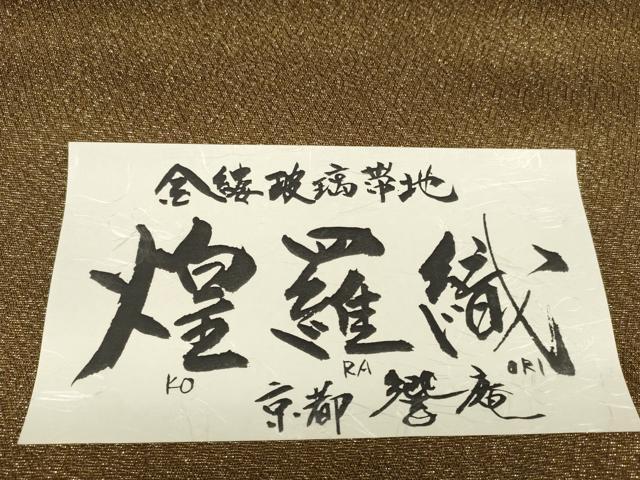 金縷玻璃帯地
煌羅織
KO RA ORI
京都 響庵